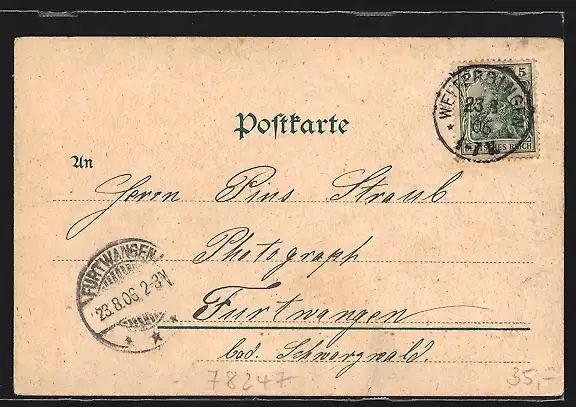 Postkarte
5
23.8.
06
DEUTSCHES REICH
An
Herrn Pius Straub
Photograph
Furtwangen
bad. Schwarzwald.
FURTWANGEN
23.8.06 2-3N.
78247
35,-